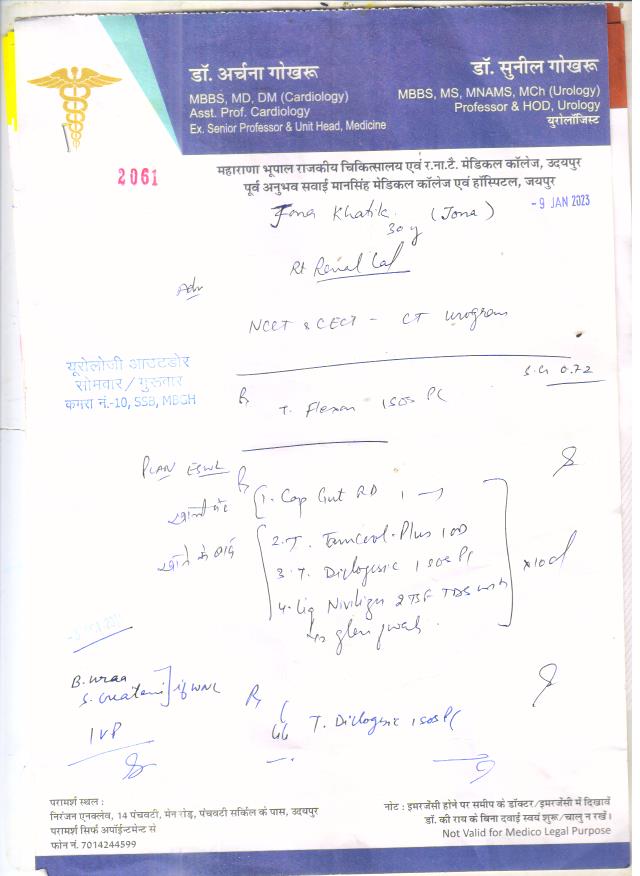 डॉ. अर्चना गोखरू
MBBS, MD, DM (Cardiology)
Asst. Prof. Cardiology
Ex. Senior Professor & Unit Head, Medicine
डॉ. सुनील गोखरू
MBBS, MS, MNAMS, MCh (Urology)
Professor & HOD, Urology
यूरोलॉजिस्ट
2061
महाराणा भूपाल राजकीय चिकित्सालय एवं र.ना.टै. मेडिकल कॉलेज, उदयपुर
पूर्व अनुभव सवाई मानसिंह मेडिकल कॉलेज एवं हॉस्पिटल, जयपुर
- 9 JAN 2023
Jona Khatik (Jona)
30 y
Rt Renal Cal
Adv
NCCT & CECT - CT urogram
S. Cr 0.72
यूरोलॉजी आउटडोर
सोमवार / गुरूवार
कमरा नं.-10, SSB, MBGH
Rx
T. Flexon 1 SOS PC
PLAN ESWL
Rx
1. Cap Gut RD 1
2. T. Plus 1 OD
खाने के बाद
3. T. Diclogesic 1 SOS PC
x 10 d
4. Liq 2 TSF TDS with
glass water
B. urea
S. Creatinine if WNL
IVP
Rx
T. Diclogesic 1 SOS PC
परामर्श स्थल :
निरंजन एनक्लेव, 14 पंचवटी, मेन रोड़, पंचवटी सर्किल के पास, उदयपुर
परामर्श सिर्फ अपॉईन्टमेन्ट से
फोन नं. 7014244599
नोट : इमरजेंसी होने पर समीप के डॉक्टर/इमरजेंसी में दिखावें
डॉ. की राय के बिना दवाई स्वयं शुरू/चालु न रखें।
Not Valid for Medico Legal Purpose